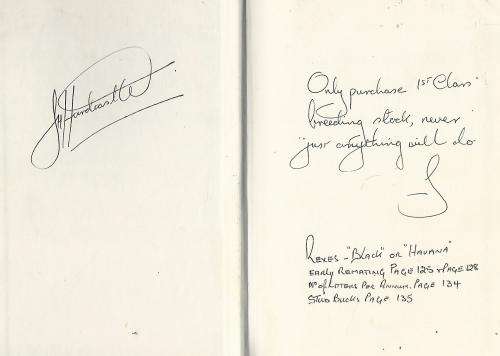 J Hardcastle
Only purchase 1st Class
breeding stock, never
"just anything will do
J
Rexes - "Black" or "Havana"
Early Remating Page 125 + Page 128
No of Litters Per Annum. Page 134
Stud Bucks Page 135